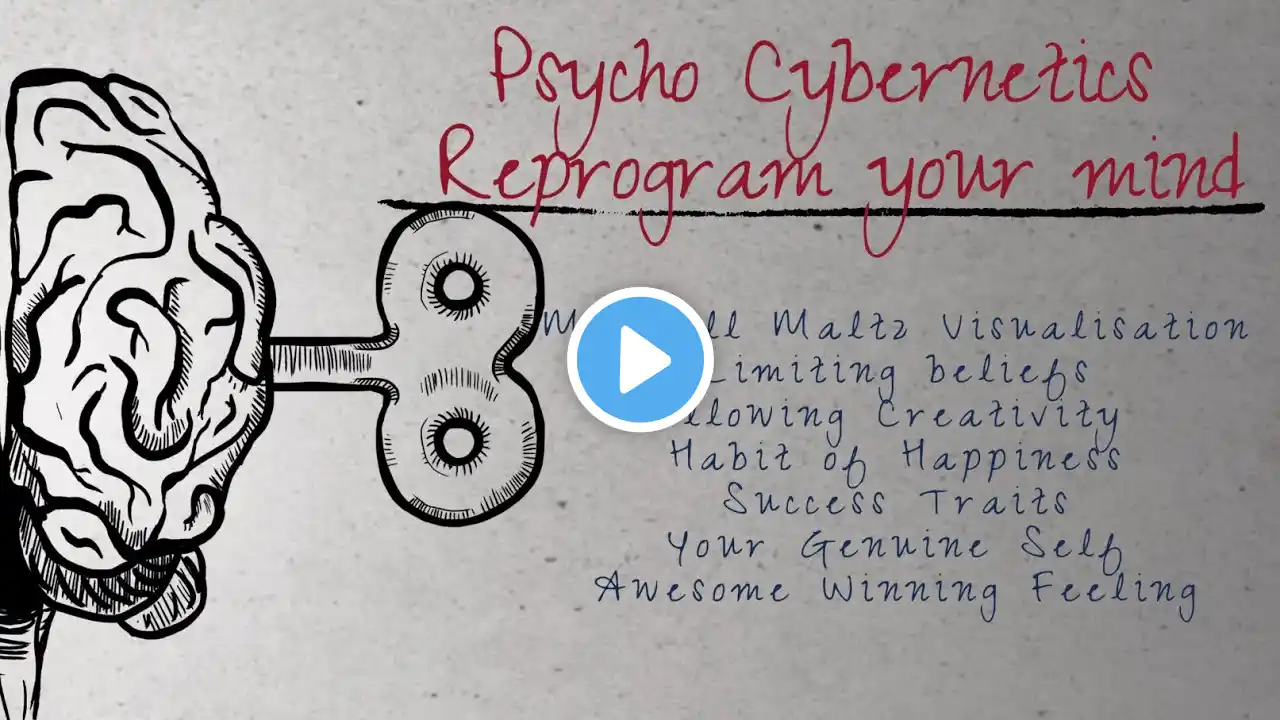 Psycho Cybernetics
Reprogram your mind
Maltz Visualisation
Limiting beliefs
Creativity
Habit of Happiness
Success Traits
Your Genuine Self
Awesome Winning Feeling